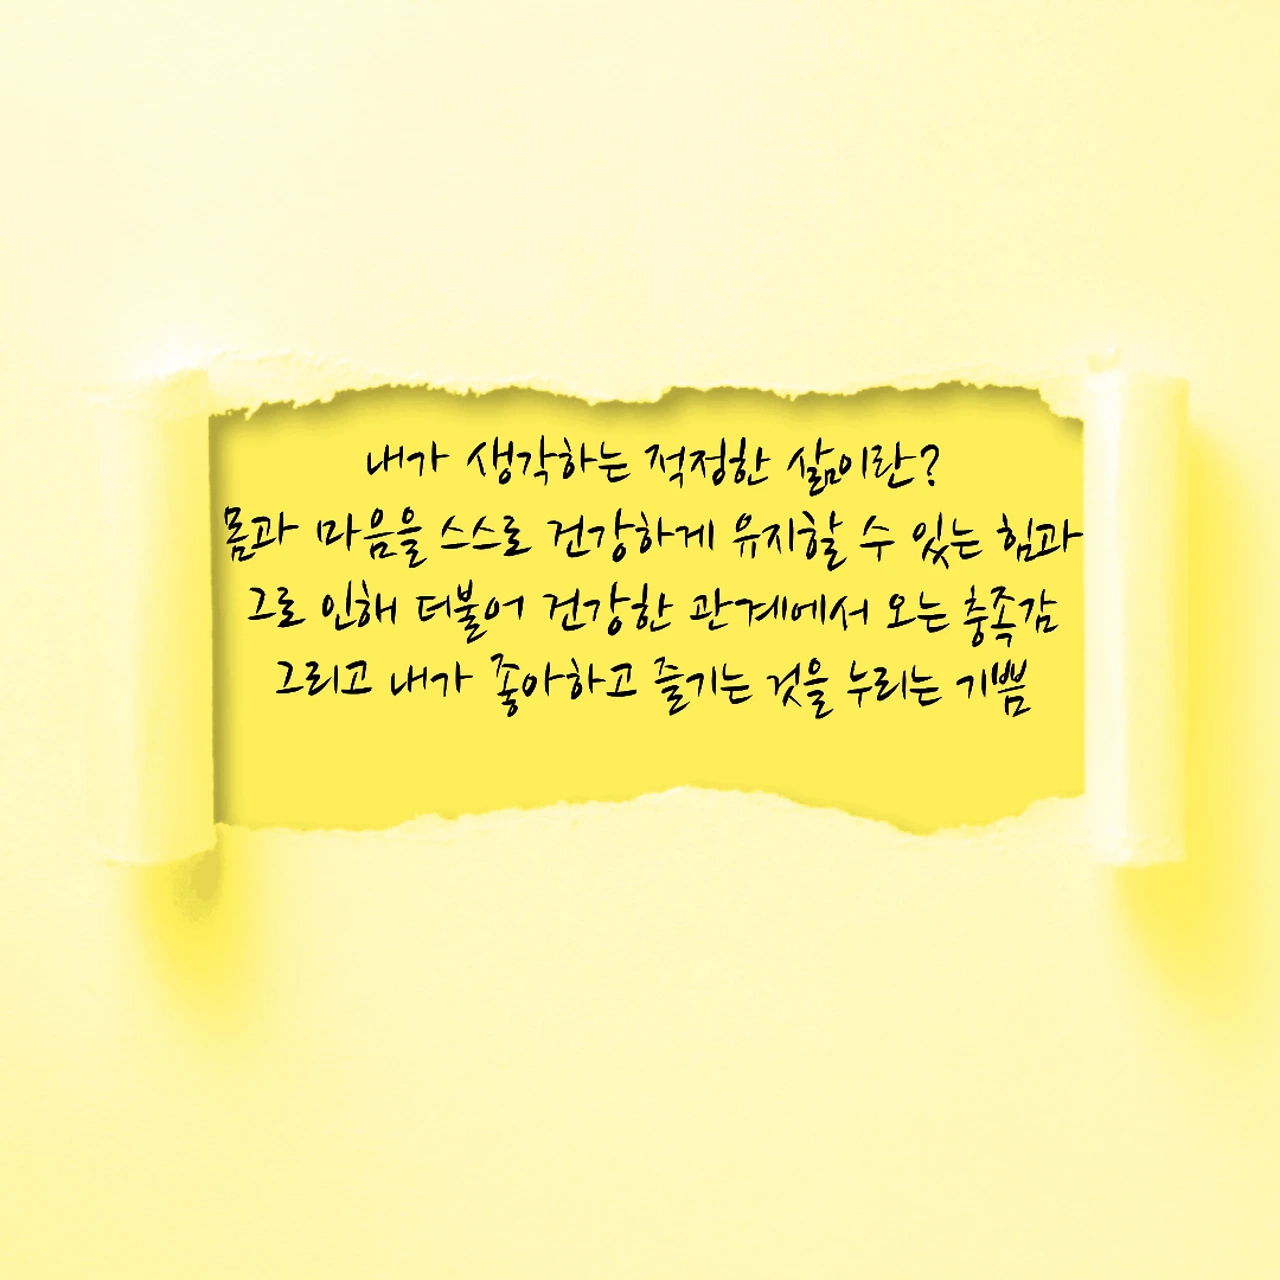 내가 생각하는 적정한 삶이란?
몸과 마음을 스스로 건강하게 유지할 수 있는 힘과
그로 인해 더불어 건강한 관계에서 오는 충족감
그리고 내가 좋아하고 즐기는 것을 누리는 기쁨